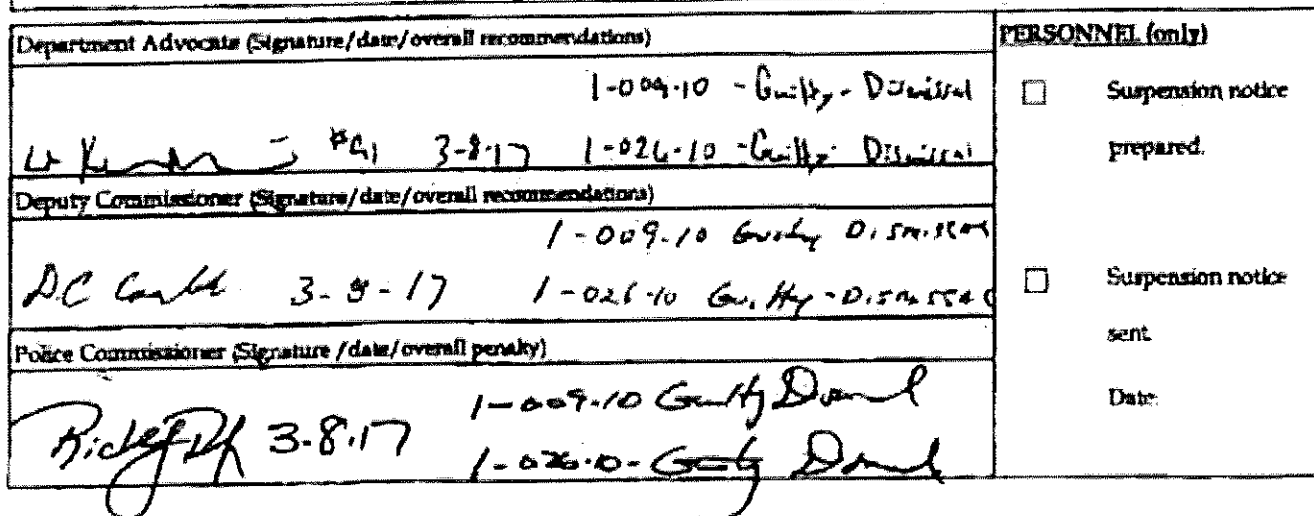 Department Advocate (Signature/date/overall recommendations)
1-009-10 - Guilty - Dismissal
Lt #91 3-8-17 1-026-10 - Guilty - Dismissal
Deputy Commissioner (Signature/date/overall recommendations)
1-009-10 Guilty Dismissal
DC 3-8-17 1-026-10 Guilty - Dismissal
Police Commissioner (Signature/date/overall penalty)
1-009-10 Guilty
3-8-17 1-026-10 - Guilty
PERSONNEL (only)
☐ Suspension notice
prepared.
☐ Suspension notice
sent.
Date: